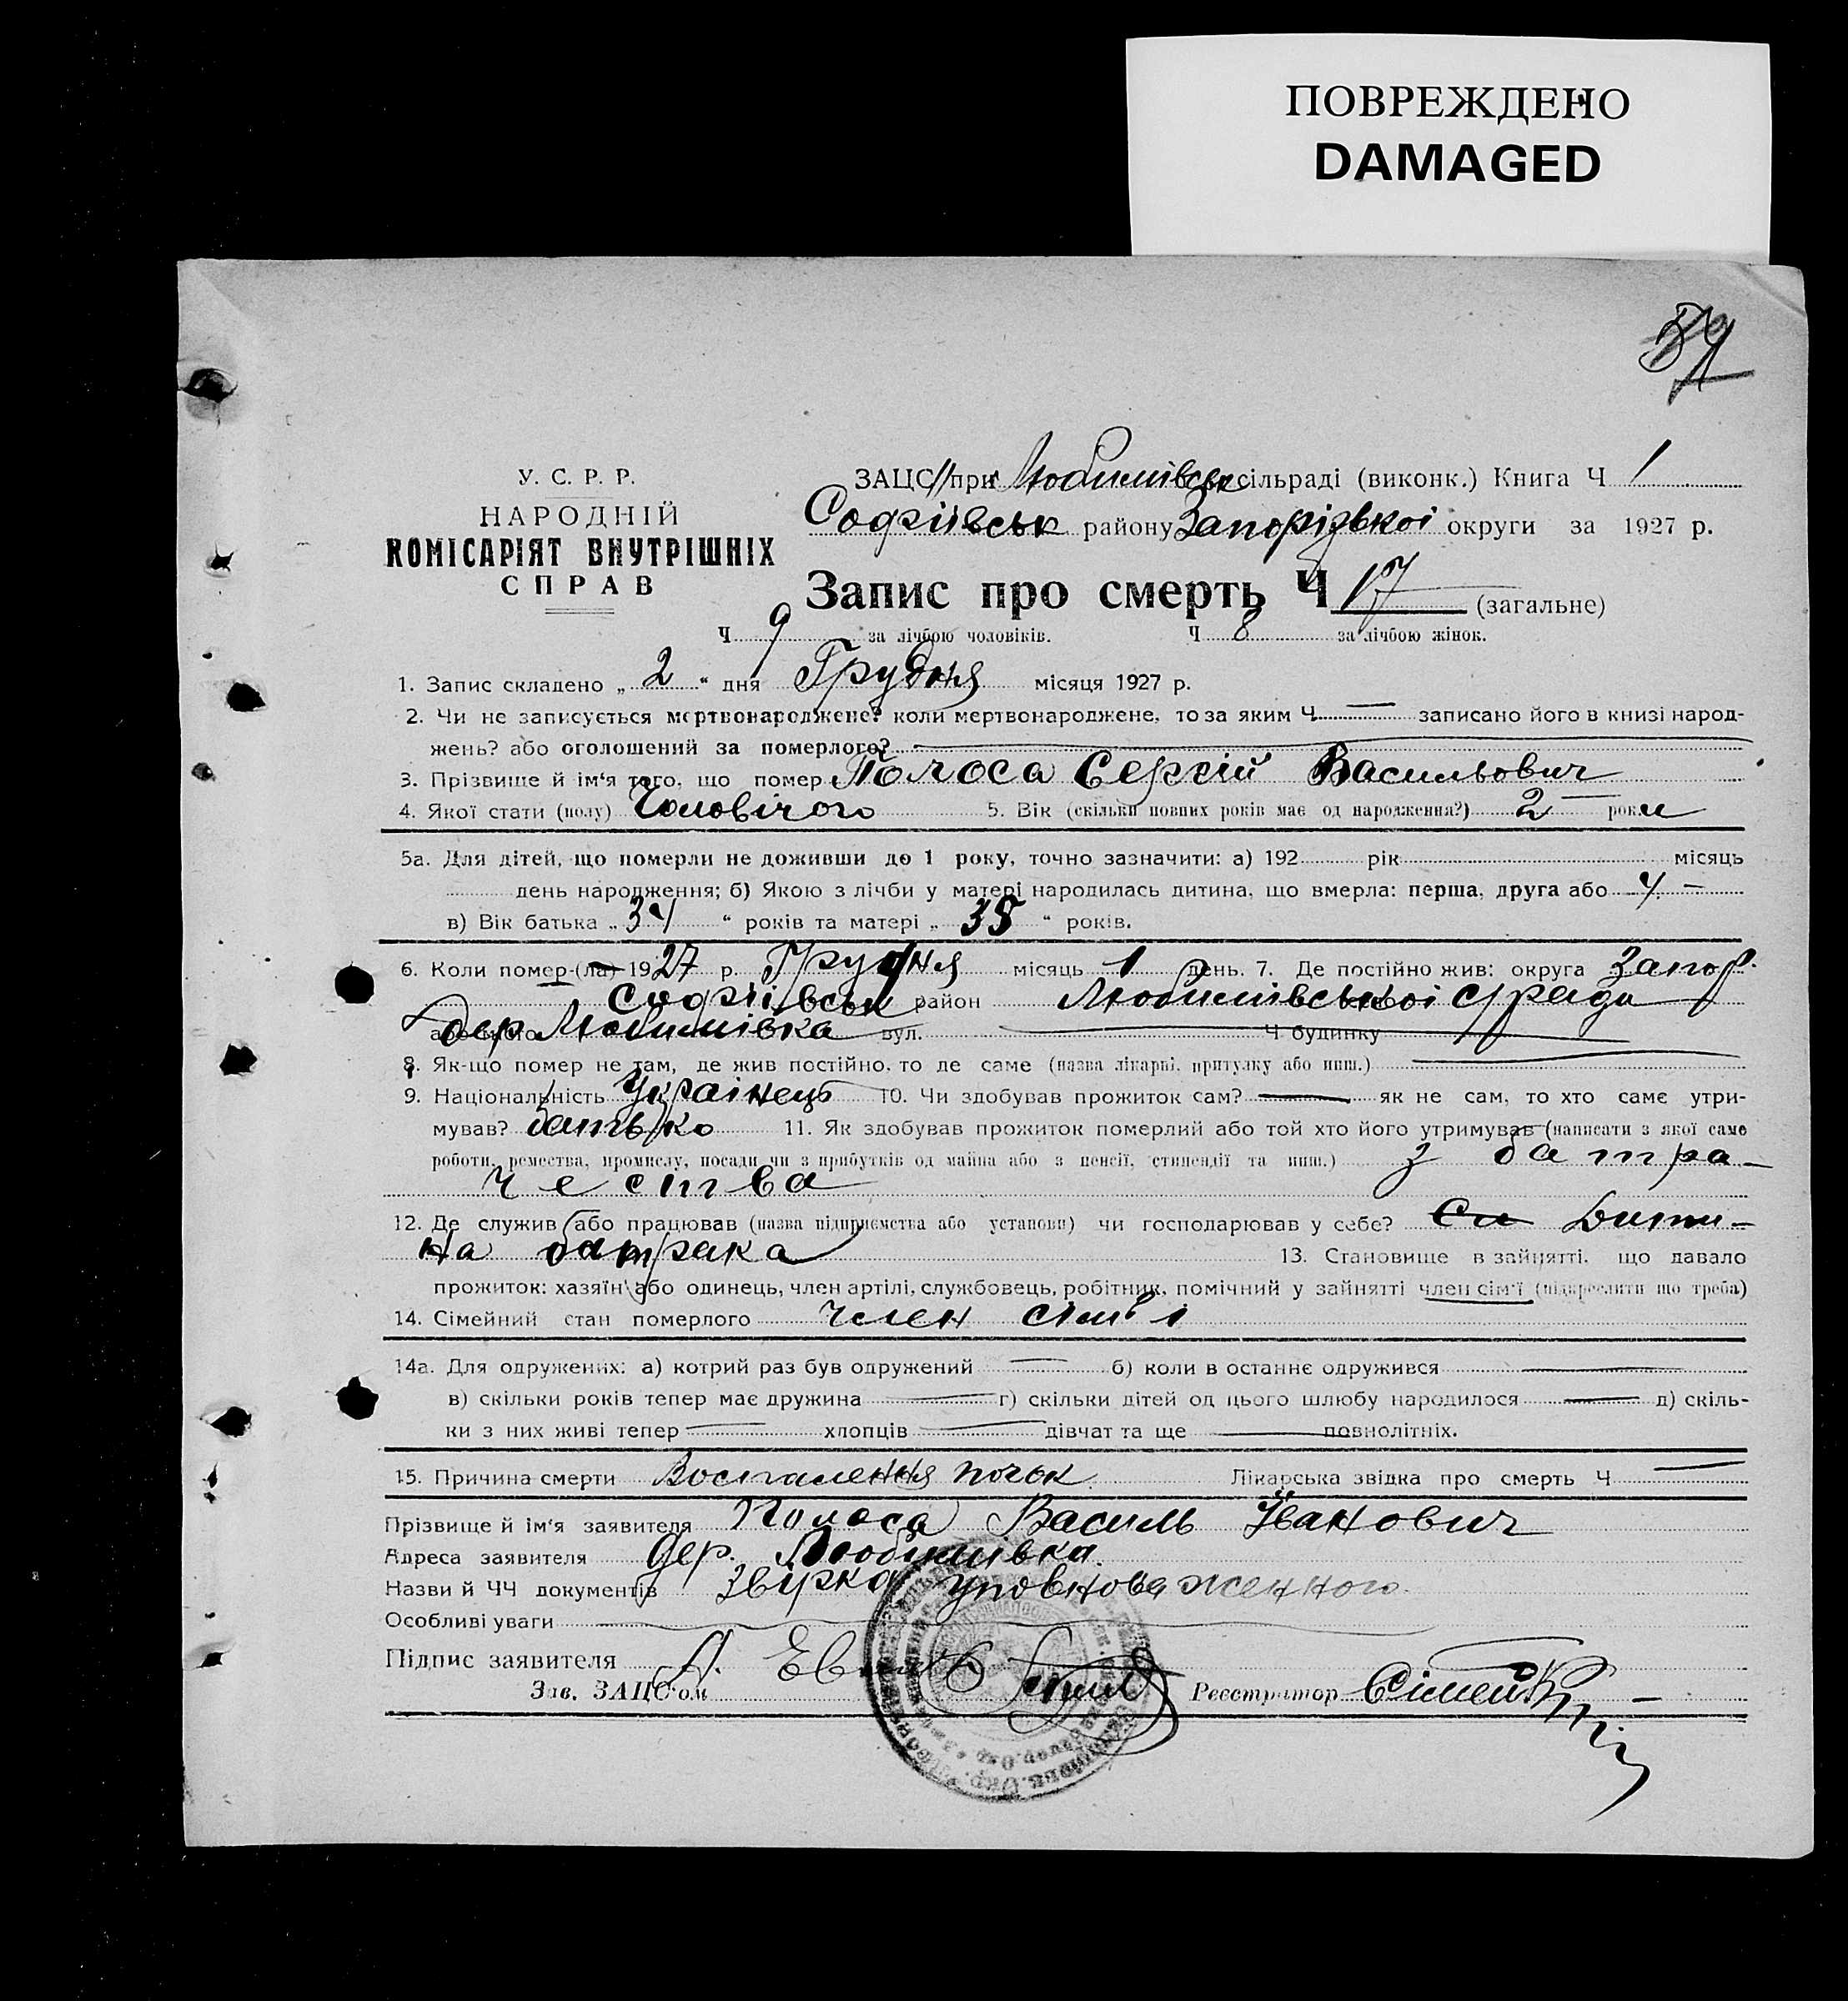 ПОВРЕЖДЕНО
DAMAGED
У. С. Р. Р.
НАРОДНІЙ
КОМІСАРІЯТ ВНУТРІШНІХ
СПРАВ
ЗАЦС при Любимівськ сільраді (виконк.) Книга Ч 1
Софіївськ району Запорізької округи за 1927 р.
Запис про смерть Ч 17 (загальне)
Ч 9 за лічбою чоловіків. Ч 8 за лічбою жінок.
1. Запис складено „ 2 “ дня Грудня місяця 1927 р.
2. Чи не записується мертвонароджене? коли мертвонароджене, то за яким Ч — записано його в книзі народ-
жень? або оголошений за померлого? —
3. Прізвище й ім'я того, що помер Полоса Сергій Васильович
4. Якої стати (полу) Чоловічого 5. Вік (скільки повних років має од народження?) 2 — роки
5а. Для дітей, що померли не доживши до 1 року, точно зазначити: а) 192 рік місяць
день народження; б) Якою з лічби у матері народилась дитина, що вмерла: перша, друга або 4 –
в) Вік батька „ 34 “ років та матері „ 35 “ років.
6. Коли помер-(ла) 1927 р. Грудня місяць 1 день. 7. Де постійно жив: округа Запор.
Софіївськ район Любимівської с/ради
дер Любимівка вул. — Ч будинку
8. Як-що помер не там, де жив постійно, то де саме (назва лікарні, притулку або инш.) —
9. Національність Українець 10. Чи здобував прожиток сам? — як не сам, то хто саме утри-
мував? батько 11. Як здобував прожиток померлий або той хто його утримував (написати з якої саме
роботи, ремества, промислу, посади чи з прибутків од майна або з пенсії, стипендії та инш.) з батра-
чества
12. Де служив або працював (назва підприємства або установи) чи господарював у себе? Си Дити-
на батрака 13. Становище в зайнятті, що давало
прожиток: хазяїн або одинець, член артілі, службовець, робітник, помічний у зайнятті член сім'ї (підкреслити що треба)
14. Сімейний стан померлого член сімї
14а. Для одружених: а) котрий раз був одружений — б) коли в останнє одружився —
в) скільки років тепер має дружина — г) скільки дітей од цього шлюбу народилося — д) скіль-
ки з них живі тепер — хлопців — дівчат та ще — повнолітніх.
15. Причина смерти Воспалення почок. Лікарська звідка про смерть Ч —
Прізвище й ім'я заявителя Полоса Василь Іванович
Адреса заявителя дер. Любимівка.
Назви й ЧЧ документів Звірка уповноваженного
Особливі уваги —
Підпис заявителя А.
Зав. ЗАЦС'ом Реєстратор